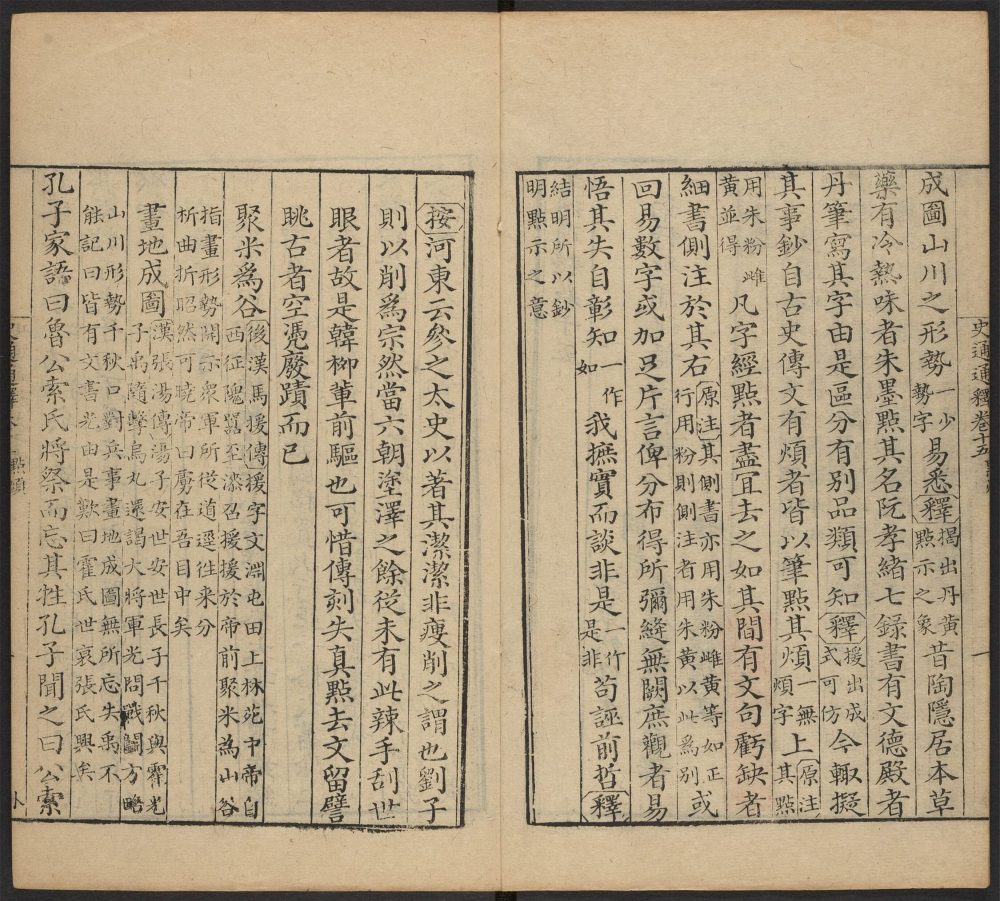 史通通釋卷十五
成圖山川之形勢一少勢字易悉釋揭出丹黃點示之象昔陶隱居本草
藥有冷熱味者朱墨點其名阮孝緒七錄書有文德殿者
丹筆寫其字由是區分有別品類可知釋援出成式可仿今輒擬
其事鈔自古史傳文有煩者皆以筆點其煩一無煩字上原注其點
用朱粉雌黃並得凡字經點者盡宜去之如其間有文句虧缺者
細書側注於其右原注其側書亦用朱粉雌黃等如正行用粉則側注者用朱黃以此為別或
回易數字或加足片言俾分布得所彌縫無闕庶觀者易
悟其失自彰知一作如我摭實而談非是一作是非苟誣前哲釋
結明所以鈔明點示之意
按河東云參之太史以著其潔潔非瘦削之謂也劉子
則以削爲宗然當六朝塗澤之餘從未有此辣手刮世
眼者故是韓柳軰前驅也可惜傳刻失真點去文留譬
眺古者空憑廢蹟而已
聚米爲谷後漢馬援傳援字文淵屯田上林苑中帝自西征隗囂至漆召援援於帝前聚米為山谷
指畫形勢開示衆軍所從道逕往来分析曲折昭然可曉帝曰虜在吾目中矣
畫地成圖漢張湯傳湯子安世安世長子千秋與霍光子禹隨擊烏丸還謁大將軍光問戰鬬方略
山川形勢千秋口對兵事畫地成圖無所忘失禹不能記曰皆有文書光由是歎曰霍氏世衰張氏興矣
孔子家語曰魯公索氏將祭而忘其牲孔子聞之曰公索